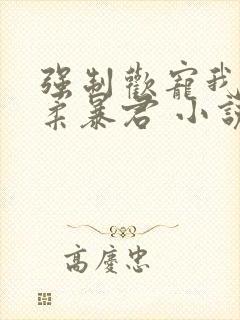 强制歡寵我
柔暴君 小說
高慶忠